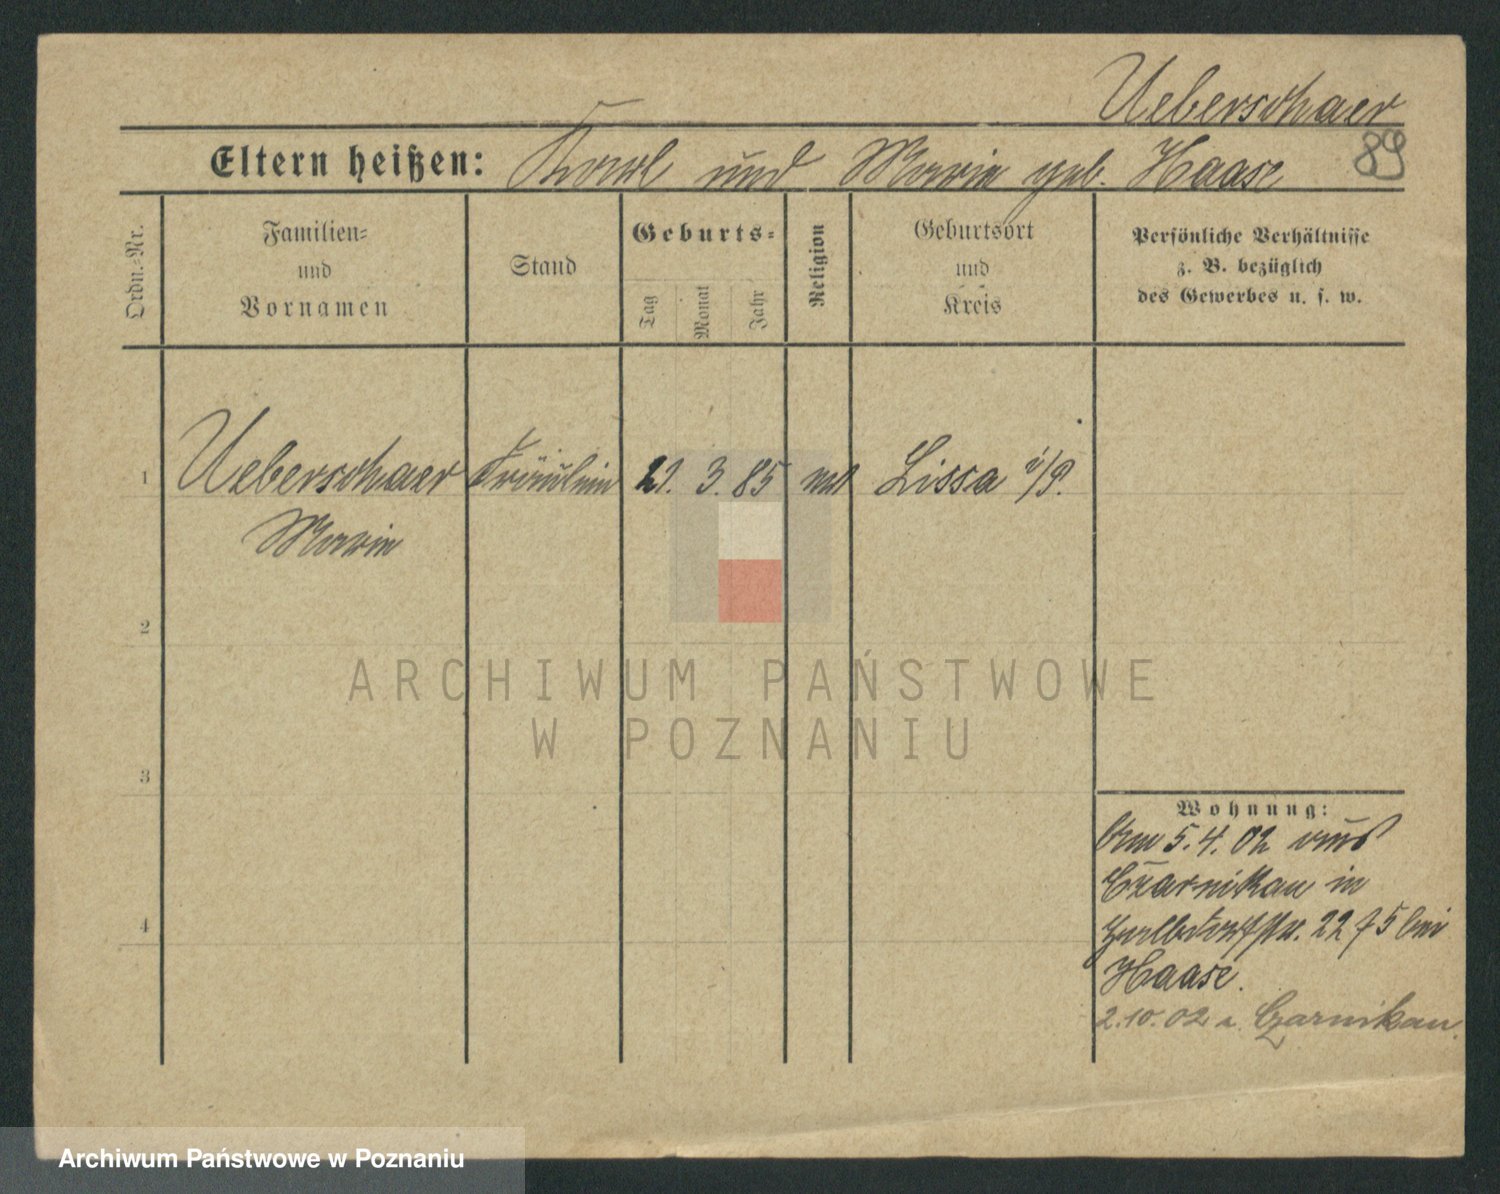 Ueberschaer
89
Eltern heißen: Karl und Marie geb. Haase
Ordn.-Nr.
Familien-
und
Vornamen
Stand
Geburts-
Tag
Monat
Jahr
Religion
Geburtsort
und
Kreis
Persönliche Verhältnisse
z. B. bezüglich
des Gewerbes u. s. w.
1 Ueberschaer Fräulein 21. 3. 85 Lissa i/P.
Marie
2
3
4
Wohnung:
5. 4. 02 aus
Czarnikau in
22 bei
Haase.
2.10.02 n. Czarnikau.
ARCHIWUM PAŃSTWOWE
W POZNANIU
Archiwum Państwowe w Poznaniu